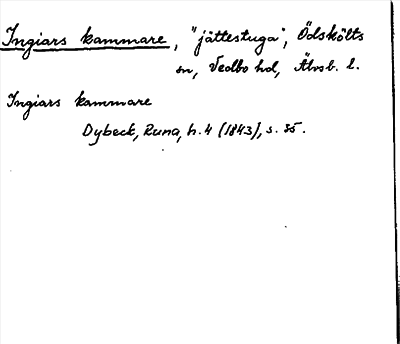 Ingiars kammare, "jättestuga", Ödskölts
sn, Vedbo hd, Älvsb. l.
Ingiars kammare
Dybeck, Runa, h. 4 (1843), s. 35.